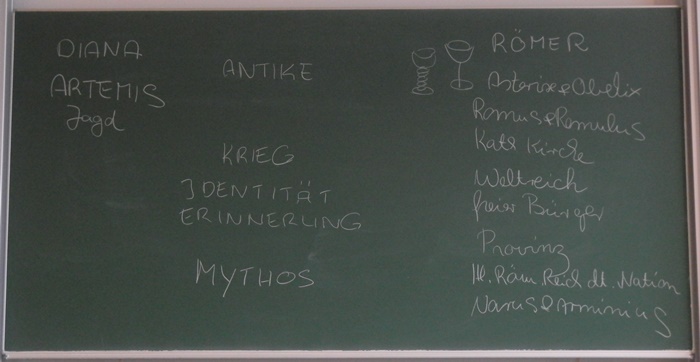 DIANA
ARTEMIS
Jagd
ANTIKE
KRIEG
IDENTITÄT
ERINNERUNG
MYTHOS
RÖMER
Asterix & Obelix
Romus & Romulus
Kath Kirche
Weltreich
freier Bürger
Provinz
Hl. Röm. Reich dt. Nation
Varus & Arminius